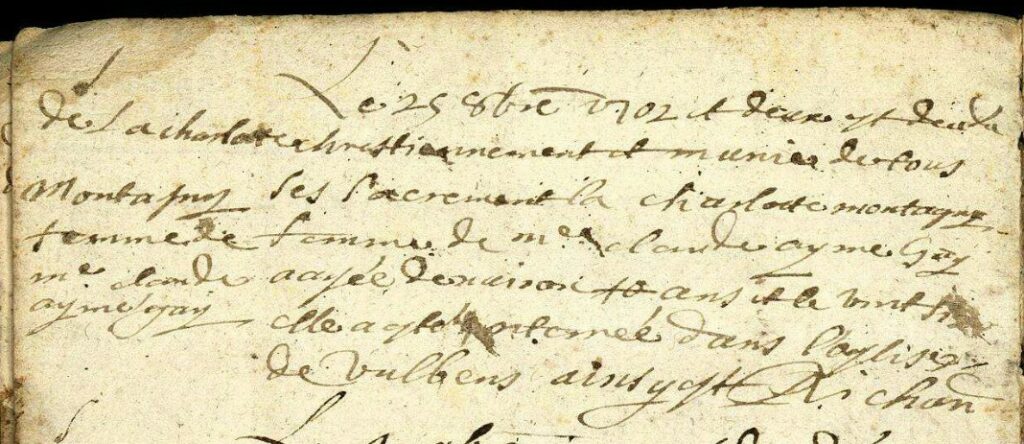 Le 25 8bre 1702 et
de La charlote chrestiennement et munie de tous
Montagny ses sacrement la charlote montagny
femme de femme de me claude ayme Gay
me claude aagée denviron ans et le vint
ayme gay elle a esté enterrée dans l'eglise
de Vulbens ainsy est Richard